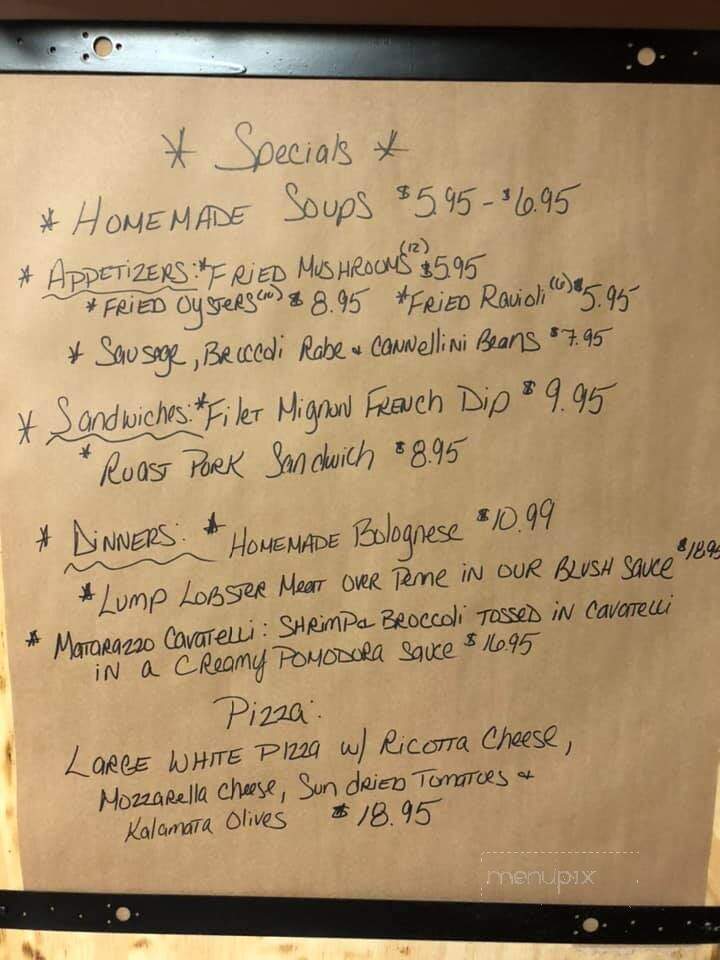 * Specials *
* HOMEMADE SOUPS $5.95 - $6.95
* APPETIZERS: * FRIED MUSHROOMS (12) $5.95
* FRIED OYSTERS (10) $8.95 * FRIED Ravioli (6) $5.95
* Sausage, BROCCOLI Rabe & CANNELLINI Beans $7.95
* Sandwiches: * Filet Mignon FRENCH Dip $9.95
* ROAST PORK Sandwich $8.95
* DINNERS: * HOMEMADE Bolognese $10.99
* LUMP LOBSTER Meat OVER Penne IN OUR BLUSH Sauce $18.95
* MATARAZZO CAVATELLI: SHRIMP & BROCCOLI TOSSED IN CAVATELLI
IN a CREAMY POMODORA Sauce $16.95
Pizza:
LARGE WHITE PIZZA w/ RICOTTA Cheese,
MOZZARELLA Cheese, Sun dRIED TOMATOES &
Kalamata Olives $18.95
menupix